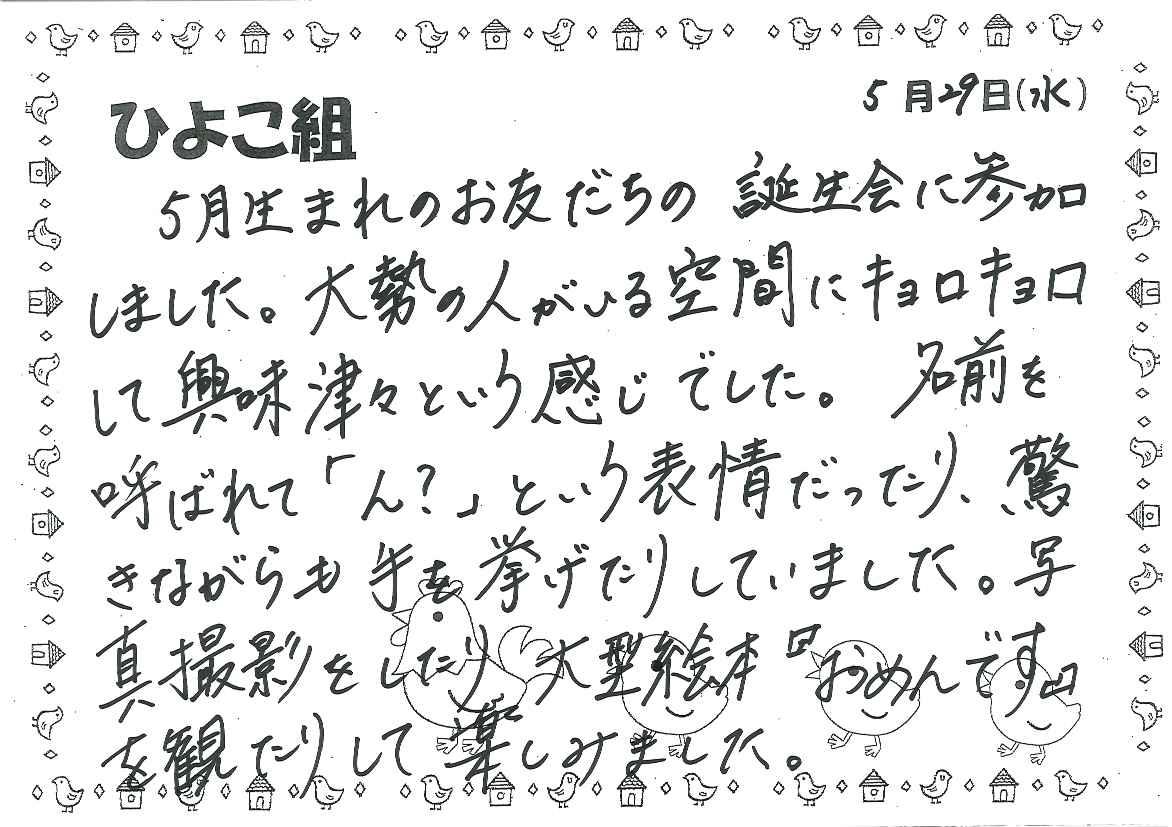 5月29日(水)
ひよこ組
5月生まれのお友だちの誕生会に参加
しました。大勢の人がいる空間にキョロキョロ
して興味津々という感じでした。名前を
呼ばれて「ん?」という表情だったり、驚
きながらも手を挙げたりしていました。写
真撮影をしたり大型絵本『おめんです』
を観たりして楽しみました。